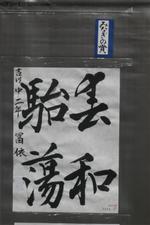 みなぎの賞
春和
駘蕩
吉川中二年 冨依